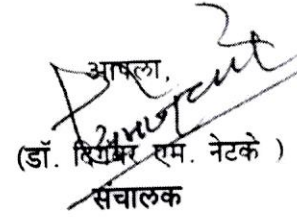 आपला,
(डॉ. दिगंबर एम. नेटके )
संचालक